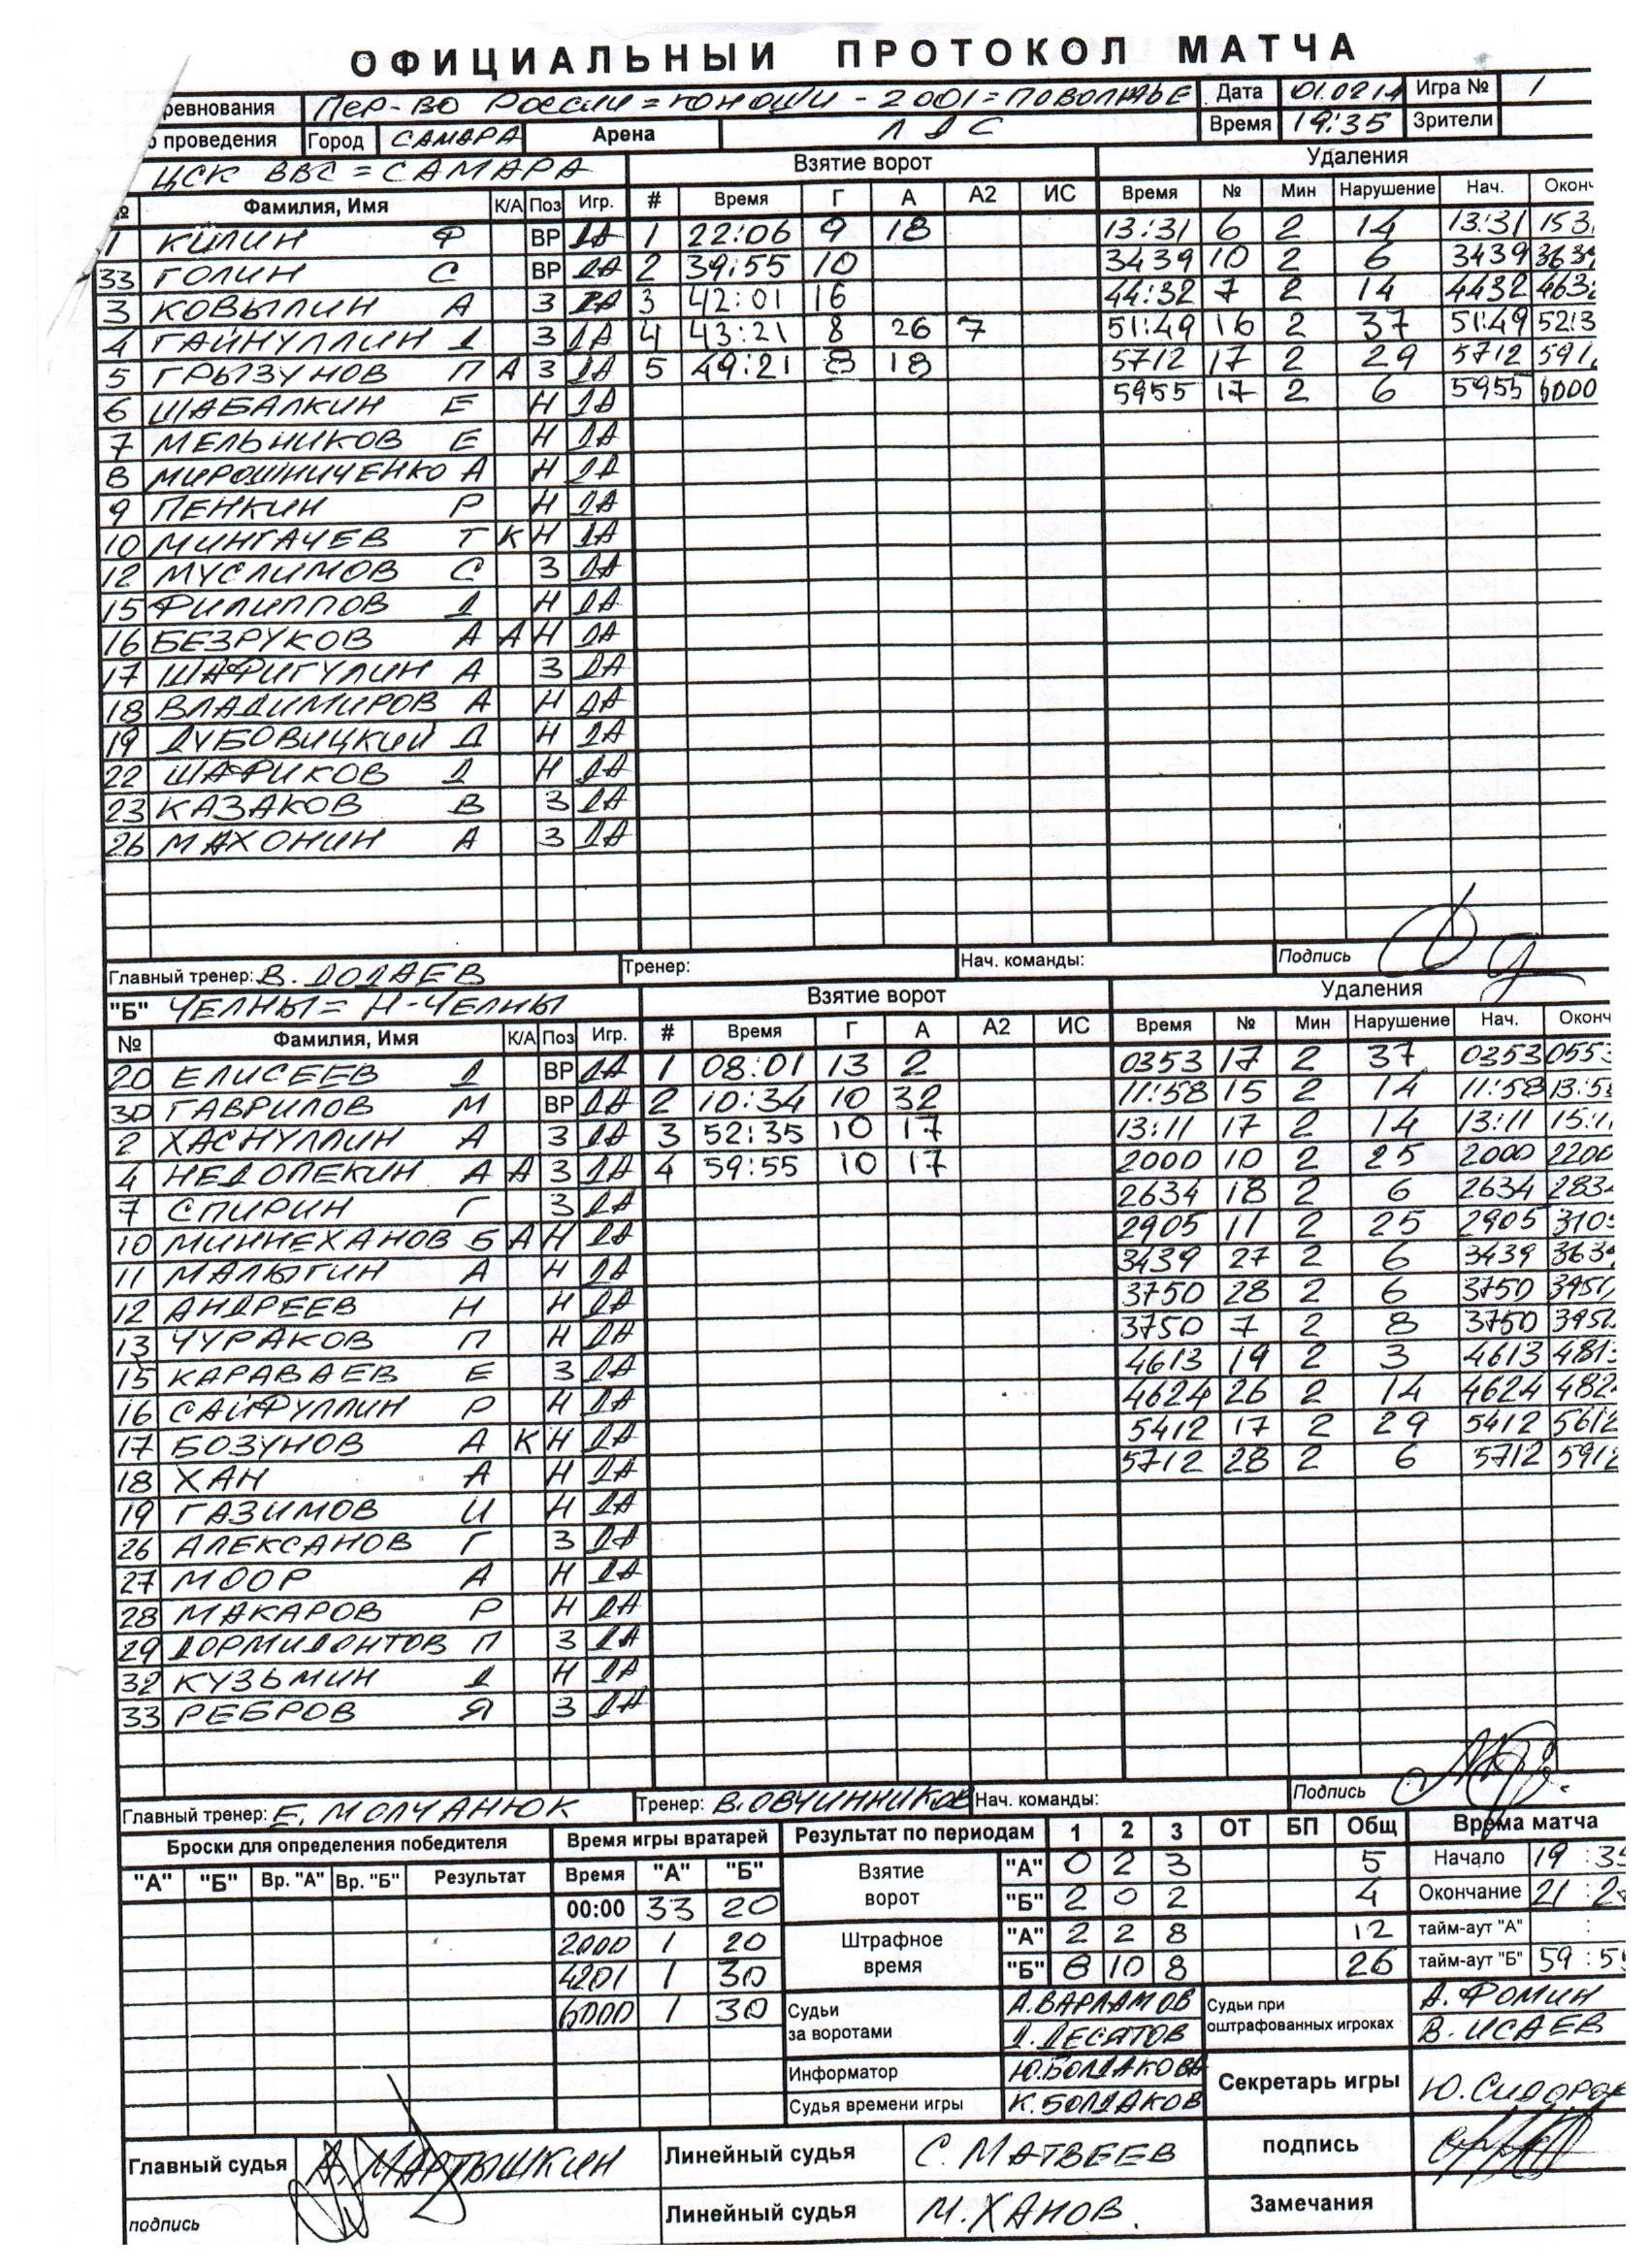 ОФИЦИАЛЬНЫЙ ПРОТОКОЛ МАТЧА
ревнования Пер-во России=юноши-2001=Поволжье Дата 01.02.14 Игра № 1
о проведения Город САМАРА Арена ЛДС Время 19:35 Зрители
ЦСК ВВС=САМАРА Взятие ворот Удаления
№ Фамилия, Имя К/А Поз Игр. # Время Г А А2 ИС Время № Мин Нарушение Нач. Оконч
1 КИЛИН Ф ВР ДА 1 22:06 9 18 13:31 6 2 14 13:31 153
33 ГОЛИН С ВР ДА 2 39:55 10 3439 10 2 6 3439 3639
3 КОВЫЛИН А З ДА 3 42:01 16 44:32 7 2 14 4432 4632
4 ГАЙНУЛЛИН Д З ДА 4 43:21 8 26 7 51:49 16 2 37 51:49 523
5 ГРЫЗУНОВ П А З ДА 5 49:21 8 18 5712 17 2 29 5712 591
6 ШАБАЛКИН Е Н ДА 5955 17 2 6 5955 6000
7 МЕЛЬНИКОВ Е Н ДА
8 МИРОШНИЧЕНКО А Н ДА
9 ПЕНКИН Р Н ДА
10 МИНГАЧЕВ Т К Н ДА
12 МУСЛИМОВ С З ДА
15 ФИЛИППОВ Д Н ДА
16 БЕЗРУКОВ А А Н ДА
17 ШАФИГУЛИН А З ДА
18 ВЛАДИМИРОВ А Н ДА
19 ДУБОВИЦКИЙ Д Н ДА
22 ШАФИКОВ Д Н ДА
23 КАЗАКОВ В З ДА
26 МАХОНИН А З ДА
Главный тренер: В. ДОДАЕВ Тренер: Нач. команды: Подпись
"Б" ЧЕЛНЫ=Н-ЧЕЛНЫ Взятие ворот Удаления
№ Фамилия, Имя К/А Поз Игр. # Время Г А А2 ИС Время № Мин Нарушение Нач. Оконч
20 ЕЛИСЕЕВ Д ВР ДА 1 08:01 13 2 0353 17 2 37 0353 055
30 ГАВРИЛОВ М ВР ДА 2 10:34 10 32 11:58 15 2 14 11:58 13:58
2 ХАСНУЛЛИН А З ДА 3 52:35 10 17 13:11 17 2 14 13:11 15:1
4 НЕДОПЕКИН А А З ДА 4 59:55 10 17 2000 10 2 25 2000 2200
7 СПИРИН Г З ДА 2634 18 2 6 2634 283
10 МИННЕХАНОВ Б А Н ДА 2905 11 2 25 2905 310
11 МАЛЫГИН А Н ДА 3439 27 2 6 3439 363
12 АНДРЕЕВ Н Н ДА 3750 28 2 6 3750 3950
13 ЧУРАКОВ П Н ДА 3750 7 2 8 3750 3950
15 КАРАВАЕВ Е З ДА 4613 19 2 3 4613 481
16 САЙФУЛЛИН Р Н ДА 4624 26 2 14 4624 482
17 БОЗУНОВ А К Н ДА 5412 17 2 29 5412 5612
18 ХАН А Н ДА 5712 28 2 6 5712 5912
19 ГАЗИМОВ И Н ДА
26 АЛЕКСАНОВ Г З ДА
27 МООР А Н ДА
28 МАКАРОВ Р Н ДА
29 ДОРМИДОНТОВ П З ДА
32 КУЗЬМИН Д Н ДА
33 РЕБРОВ Я З ДА
Главный тренер: Е. МОЛЧАНЮК Тренер: В. ОВЧИННИКОВ Нач. команды: Подпись
Броски для определения победителя Время игры вратарей Результат по периодам 1 2 3 ОТ БП Общ Время матча
"А" "Б" Вр. "А" Вр. "Б" Результат Время "А" "Б" Взятие ворот "А" 0 2 3 5 Начало 19:35
00:00 33 20 "Б" 2 0 2 4 Окончание 21:2
2000 1 20 Штрафное время "А" 2 2 8 12 тайм-аут "А" :
4201 1 30 "Б" 8 10 8 26 тайм-аут "Б" 59:55
6000 1 30 Судьи за воротами А. ВАРЛАМОВ Судьи при оштрафованных игроках А. ФОМИН
Д. ДЕСЯТОВ В. ИСАЕВ
Информатор Ю. БОЛДАКОВА Секретарь игры Ю. СИДОРОК
Судья времени игры К. БОЛДАКОВ
Главный судья А. МАРТЫШКИН Линейный судья С. МАТВЕЕВ подпись
подпись Линейный судья М. ХАНОВ Замечания